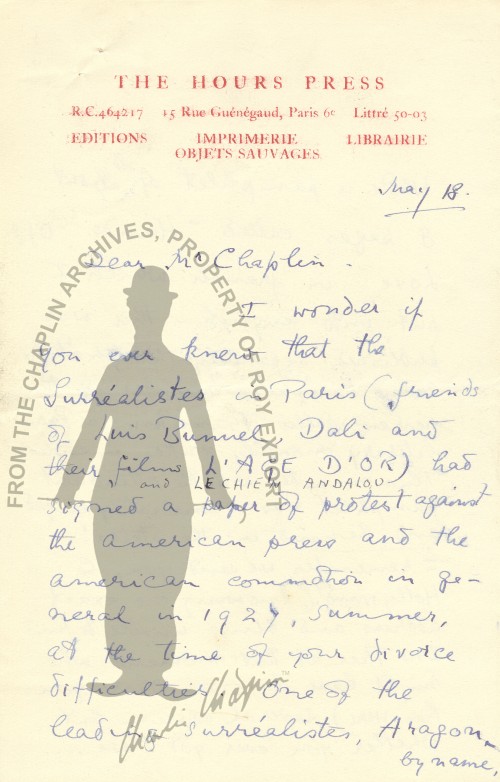 THE HOURS PRESS
R.C.464217 15 Rue Guénégaud, Paris 6e Littré 50-03
EDITIONS IMPRIMERIE LIBRAIRIE
OBJETS SAUVAGES
May 18.
FROM THE CHAPLIN ARCHIVES, PROPERTY OF ROY EXPORT
Dear Mr Chaplin -
I wonder if
you ever knew that the
Surréalistes in Paris (friends
of Luis Bunuel, Dali and
their films L'AGE D'OR) had
and LE CHIEN ANDALOU
signed a paper of protest against
the american press and the
american commotion in ge-
neral in 1927, summer,
at the time of your divorce
difficulties. One of the
leading surréalistes, Aragon
by name,
Charlie Chaplin